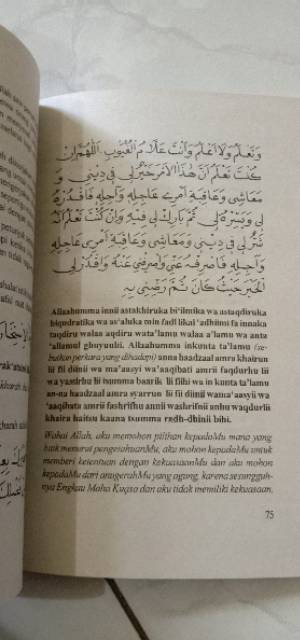 وَتَعْلَمُ وَلَا أَعْلَمُ وَأَنْتَ عَلَّامُ الْغُيُوْبِ اَللّٰهُمَّ إِنْ
كُنْتَ تَعْلَمُ أَنَّ هٰذَا الْأَمْرَ خَيْرٌ لِيْ فِيْ دِيْنِيْ وَ
مَعَاشِيْ وَعَاقِبَةِ أَمْرِيْ عَاجِلِهِ وَآجِلِهِ فَاقْدُرْهُ
لِيْ وَيَسِّرْهُ لِيْ ثُمَّ بَارِكْ لِيْ فِيْهِ وَإِنْ كُنْتَ تَعْلَمُ أَنَّهُ
شَرٌّ لِيْ فِيْ دِيْنِيْ وَمَعَاشِيْ وَعَاقِبَةِ أَمْرِيْ عَاجِلِهِ
وَآجِلِهِ فَاصْرِفْهُ عَنِّيْ وَاصْرِفْنِيْ عَنْهُ وَاقْدُرْ لِيَ
الْخَيْرَ حَيْثُ كَانَ ثُمَّ رَضِّنِيْ بِهِ
Allaahumma innii astakhiruka bi'ilmika wa astaqdiruka
biqudratika wa as'aluka min fadl likal 'adhiimi fa innaka
taqdiru walaa aqdiru wata'lamu walaa a'lamu wa anta
'allamul ghuyuubi. Allaahumma inkunta ta'lamu (se-
butkan perkara yang dihadapi) anna haadzaal amra khairun
lii fii diinii wa ma'aasyi wa'aaqibati amrii faqdurhu lii
wa yassirhu lii tsumma baarik lii fiihi wa in kunta ta'lamu
an-na haadzaal amra syarrun lii fii diinii wama'aasyii wa
'aaqibata amrii fashrifhu annii washrifnii anhu waqdurlii
khaira haitsu kaana tsumma radh-dhinii bihi.
Wahai Allah, aku memohon pilihan kepadaMu mana yang
baik menurut pengetahuanMu, aku mohon kepadaMu untuk
memberi ketentuan dengan kekuasaanMu dan aku mohon
kepadaMu dari anugerahMu yang agung, karena sesungguh-
nya Engkau Maha Kuasa dan aku tidak memiliki kekuasaan,
75